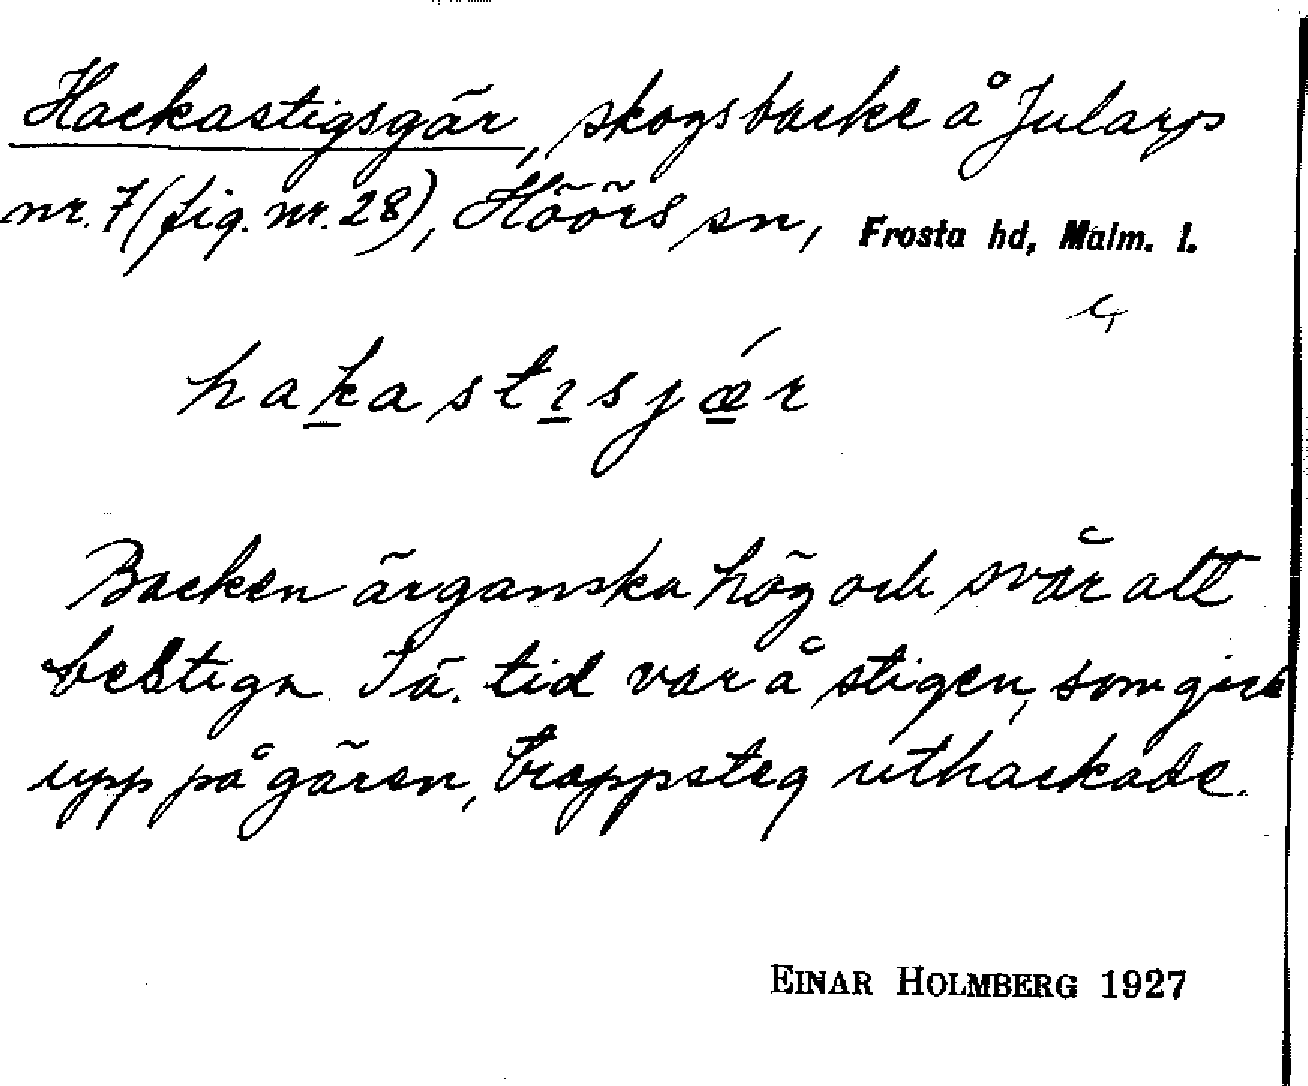 Hackastigsgär, skogsbacke å Jularp
nr. 7 (fig. nr. 28), Höörs sn, Frosta hd, Malm. l.
hakastısjǽr
Backen är ganska hög och svår att
bestiga. I ä. tid var å stigen, som gick
upp på gären, trappsteg uthackade.
EINAR HOLMBERG 1927